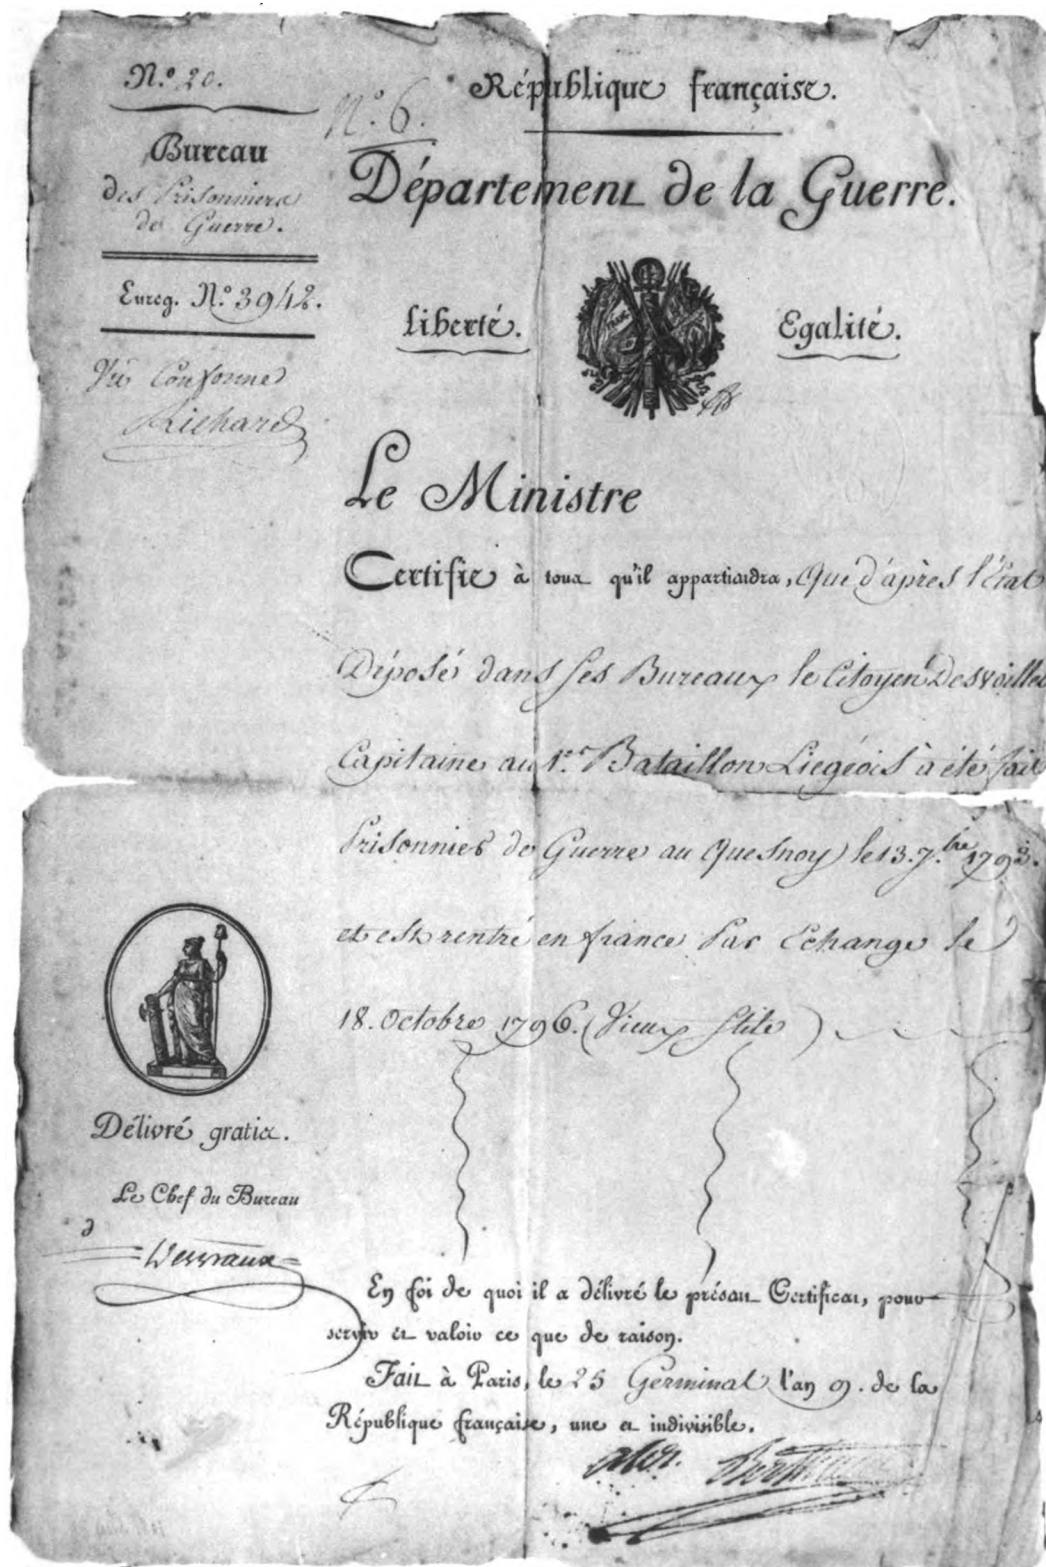 N.º 20.
Bureau
des Prisonniers
de Guerre.
Enreg. N.º 3942.
Vu Conforme
Richard
N.º 6.
République française.
Département de la Guerre.
Liberté.
Egalité.
Le Ministre
Certifie à tous qu'il appartiendra, Que d'après l'État
Déposé dans ses Bureaux le Citoyen Desvoilles
Capitaine au 1.er Bataillon Liégeois à été fait
Prisonnier de Guerre au Quesnoy le 13. 7.bre 1793.
et est rentré en france Par Echange le
18. Octobre 1796. (Vieux Stile)
Délivré gratis.
Le Chef du Bureau
En foi de quoi il a délivré le présent Certificat, pour
servir et valoir ce que de raison.
Fait à Paris, le 25 Germinal l'an 9. de la
République française, une et indivisible.
alex. Berthier